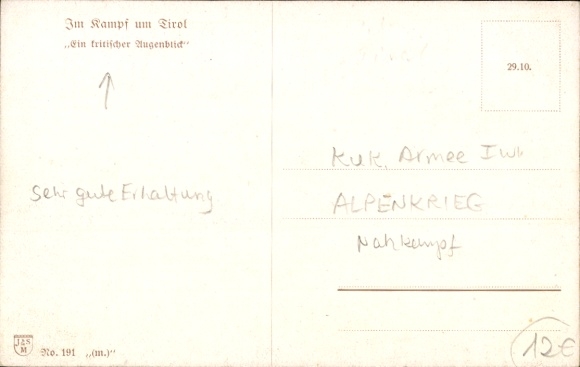 Im Kampf um Tirol
„Ein kritischer Augenblick“
29.10.
K.u.K. Armee I wk
ALPENKRIEG
Nahkampf
Sehr gute Erhaltung
J&S
M
No. 191 „(m.)“
12€